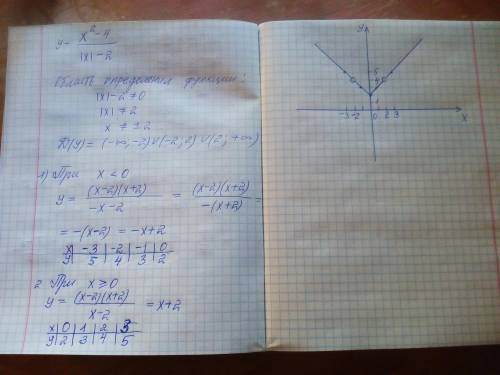 y = x² - 4 / |x| - 2
Область определения функции:
|x| - 2 ≠ 0
|x| ≠ 2
x ≠ ± 2
D(y) = (-∞; -2) ∪ (-2; 2) ∪ (2; +∞)
1) При x < 0
y = (x-2)(x+2) / -x-2 = (x-2)(x+2) / -(x+2) =
= -(x-2) = -x+2
x | -3 | -2 | -1 | 0
y | 5 | 4 | 3 | 2
2 При x ≥ 0
y = (x-2)(x+2) / x-2 = x+2
x | 0 | 1 | 2 | 3
y | 2 | 3 | 4 | 5
y
5
4
-3 -2 0 2 3 x